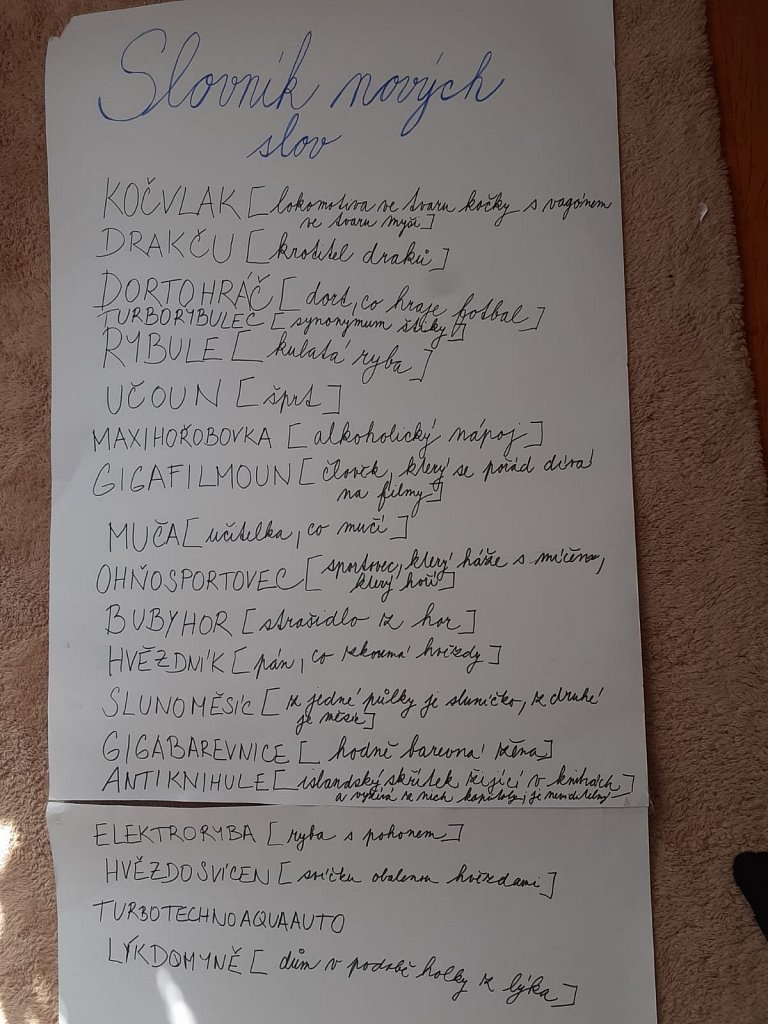 Slovník nových
slov
KOČVLAK [lokomotiva ve tvaru kočky s vagónem
ve tvaru myši]
DRAKČU [krotitel draků]
DORTOHRÁČ [dort, co hraje fotbal]
TURBORYBULEC [synonymum štiky]
RYBULE [kulatá ryba]
UČOUN [šprt]
MAXIHOŘOBOVKA [alkoholický nápoj]
GIGAFILMOUN [člověk, který se pořád dívá
na filmy]
MUČA [učitelka, co mučí]
OHŇOSPORTOVEC [sportovec, který háže s míčem,
který hoří]
BUBYHOR [strašidlo z hor]
HVĚZDNÍK [pán, co zkoumá hvězdy]
SLUNOMĚSÍC [z jedné půlky je sluníčko, z druhé
je měsíc]
GIGABAREVNICE [hodně barevná žena]
ANTIKNIHULE [islandský skřítek žijící v knihách
a vyžírá z nich kapitoly, je neviditelný]
ELEKTRORYBA [ryba s pohonem]
HVĚZDOSVÍCEN [svíčku obalenou hvězdami]
TURBOTECHNOAQUAAUTO
LÝKDOMYNĚ [dům v podobě holky z lýka]